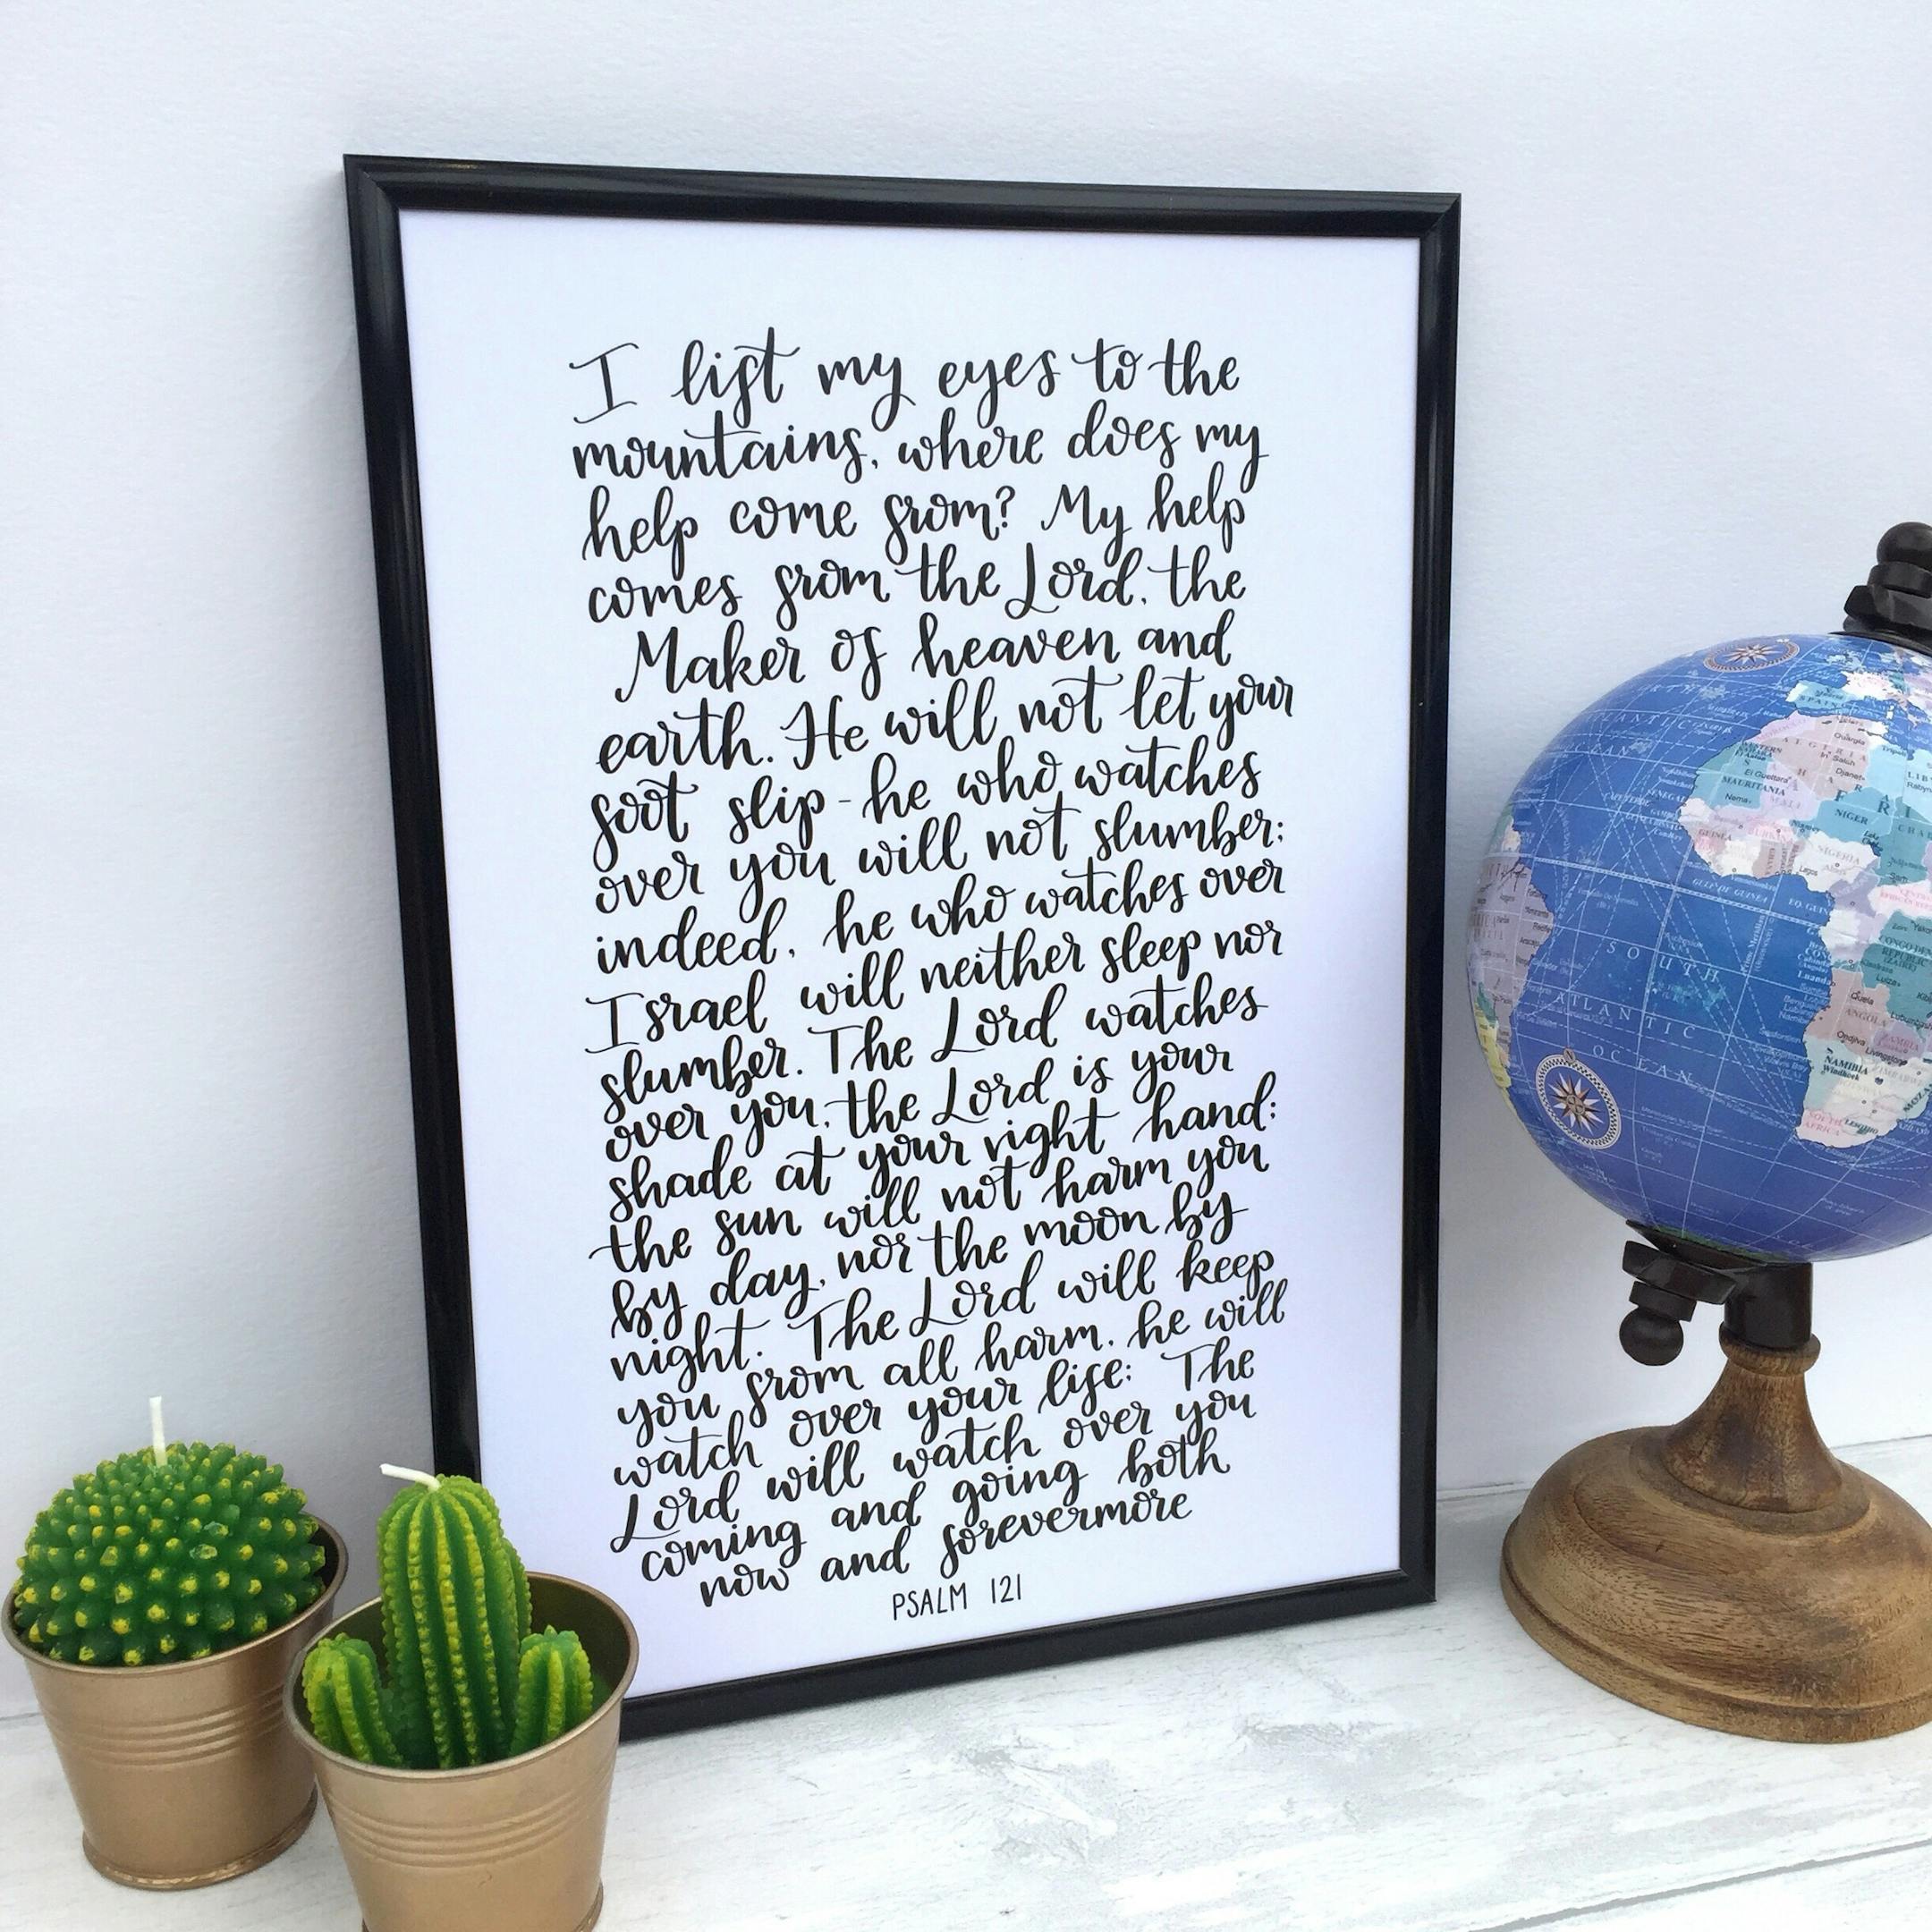 I lift my eyes to the
mountains, where does my
help come from? My help
comes from the Lord, the
Maker of heaven and
earth. He will not let your
foot slip - he who watches
over you will not slumber;
indeed, he who watches over
Israel will neither sleep nor
slumber. The Lord watches
over you, the Lord is your
shade at your right hand;
the sun will not harm you
by day, nor the moon by
night. The Lord will keep
you from all harm, he will
watch over your life; The
Lord will watch over you
coming and going both
now and forevermore
PSALM 121
SOUTH
ATLANTIC
OCEAN
MAURITANIA
NIGER
NIGERIA
ANGOLA
NAMIBIA
Windhoek
SOUTH
AFRICA